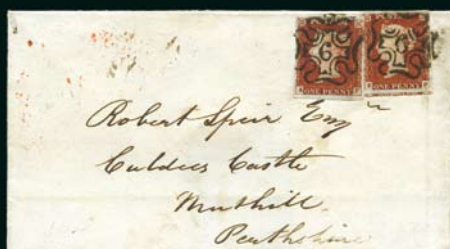 6 6
ONE PENNY ONE PENNY
Robert Speir Esqr
Culdees Castle
Muthill
Perthshire